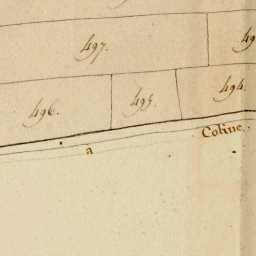 497.
49
496.
495.
494.
a
Coline